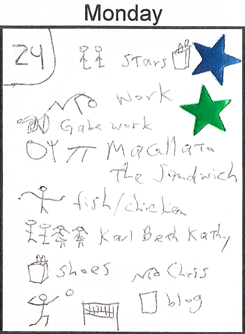 Monday
24
stars
No work
Gate work
Magllata
The Sandwich
fish/chicken
Karl Beth Kathy
shoes No Chris
blog